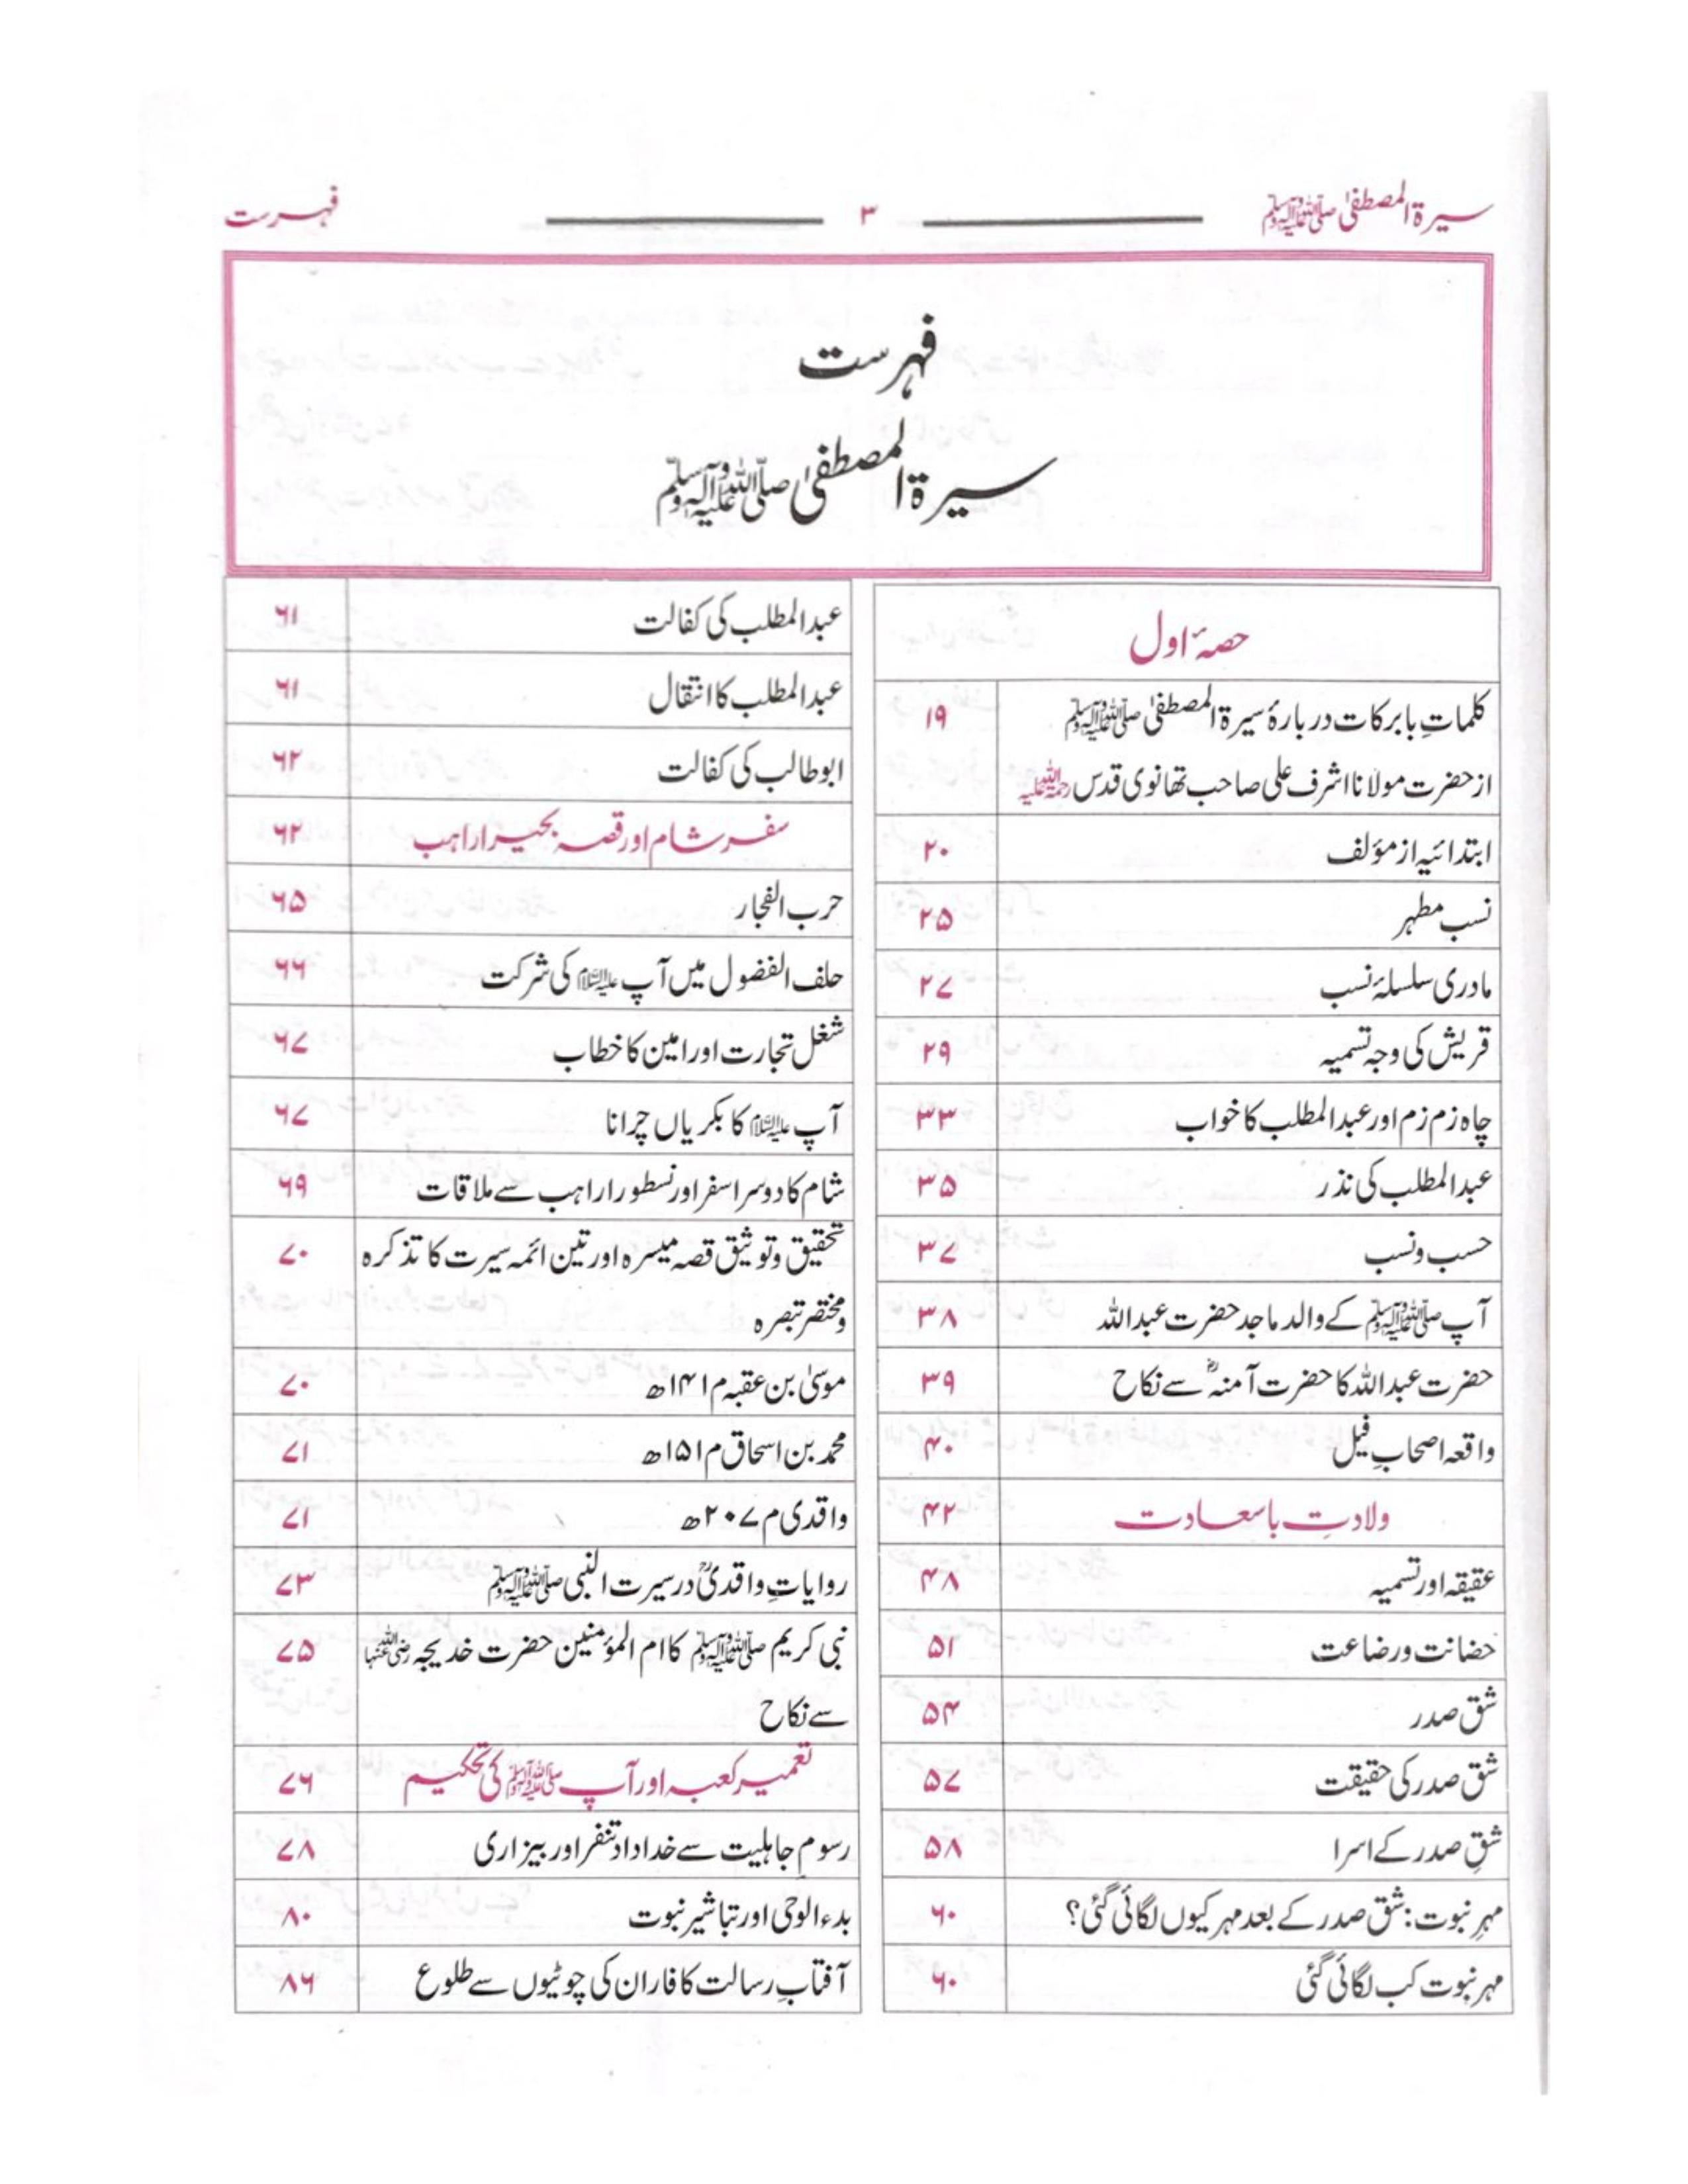 سیرۃ المصطفیٰ ﷺ ۳ فہرست
فہرست
سیرۃ المصطفیٰ ﷺ
حصۂ اول
کلماتِ بابرکات دربارۂ سیرۃ المصطفیٰ ﷺ ۱۹
از حضرت مولانا اشرف علی صاحب تھانوی قدس رحمۃ اللہ علیہ
ابتدائیہ از مؤلف ۲۰
نسب مطہر ۲۵
مادری سلسلۂ نسب ۲۷
قریش کی وجہ تسمیہ ۲۹
چاہ زم زم اور عبدالمطلب کا خواب ۳۳
عبدالمطلب کی نذر ۳۵
حسب ونسب ۳۷
آپ ﷺ کے والد ماجد حضرت عبداللہ ۳۸
حضرت عبداللہ کا حضرت آمنہؓ سے نکاح ۳۹
واقعہ اصحابِ فیل ۴۰
ولادتِ باسعادت ۴۲
عقیقہ اور تسمیہ ۴۸
حضانت ورضاعت ۵۱
شق صدر ۵۴
شق صدر کی حقیقت ۵۷
شقِ صدر کے اسرا ۵۸
مہرِ نبوت: شق صدر کے بعد مہر کیوں لگائی گئی؟ ۶۰
مہر نبوت کب لگائی گئی ۶۰
عبدالمطلب کی کفالت ۶۱
عبدالمطلب کا انتقال ۶۱
ابوطالب کی کفالت ۶۲
سفر شام اور قصہ بحیرا راہب ۶۲
حرب الفجار ۶۵
حلف الفضول میں آپ علیہ السلام کی شرکت ۶۶
شغل تجارت اور امین کا خطاب ۶۷
آپ علیہ السلام کا بکریاں چرانا ۶۷
شام کا دوسرا سفر اور نسطورا راہب سے ملاقات ۶۹
تحقیق وتوثیق قصہ میسرہ اور تین ائمہ سیرت کا تذکرہ ۷۰
ومختصر تبصرہ
موسیٰ بن عقبہ م ۱۴۱ھ ۷۰
محمد بن اسحاق م ۱۵۱ھ ۷۱
واقدی م ۲۰۷ھ ۷۱
روایاتِ واقدیؒ در سیرت النبی ﷺ ۷۳
نبی کریم ﷺ کا ام المؤمنین حضرت خدیجہ رضی اللہ عنہا ۷۵
سے نکاح
تعمیر کعبہ اور آپ ﷺ کی تحکیم ۷۶
رسومِ جاہلیت سے خداداد تنفر اور بیزاری ۷۸
بدء الوحی اور تباشیر نبوت ۸۰
آفتابِ رسالت کا فاران کی چوٹیوں سے طلوع ۸۶